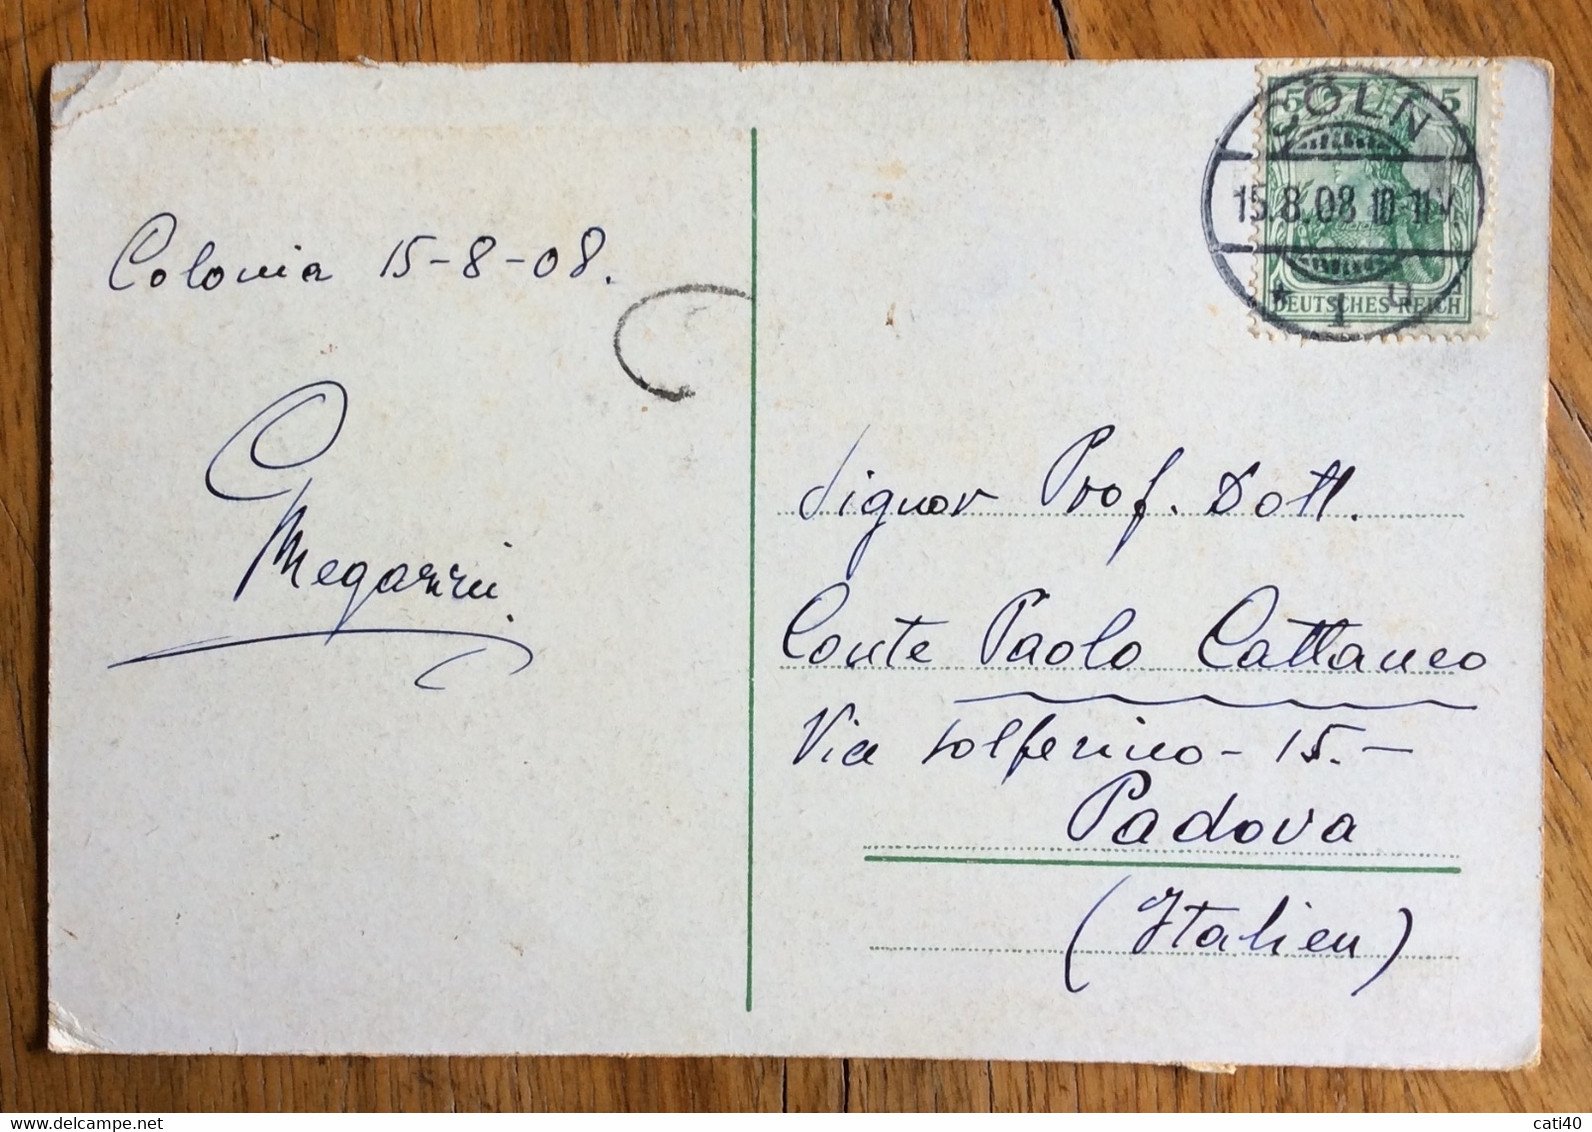 Colonia 15-8-08.
CÖLN
15.8.08 10-11V
* 1
5 5
DEUTSCHES REICH
Signor Prof. Dott.
Conte Paolo Cattaneo
Via Solferino - 15.-
Padova
(Italien)
cati40